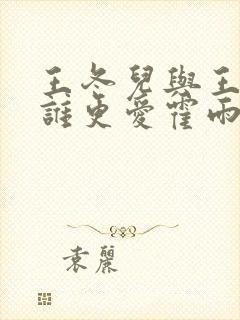 王冬兒與王
誰更愛霍雨
袁麗